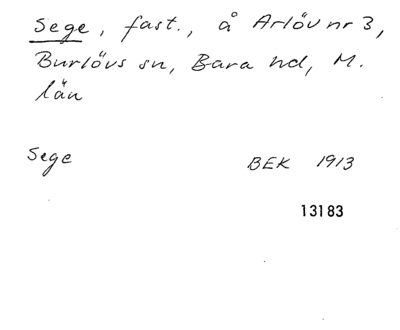 Sege, fast., å Arlöv nr 3,
Burlövs sn, Bara hd, M.
län
Sege BEK 1913
13183